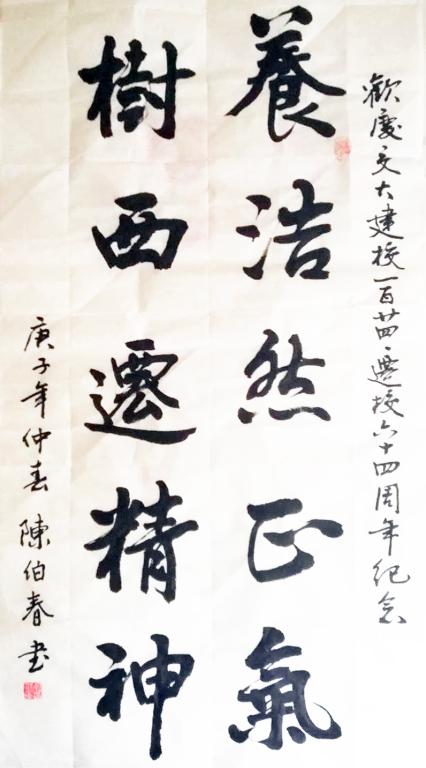 歡慶交大建校一百廿四、遷校六十四周年紀念
養浩然正氣
樹西遷精神
庚子年仲春 陳伯春書